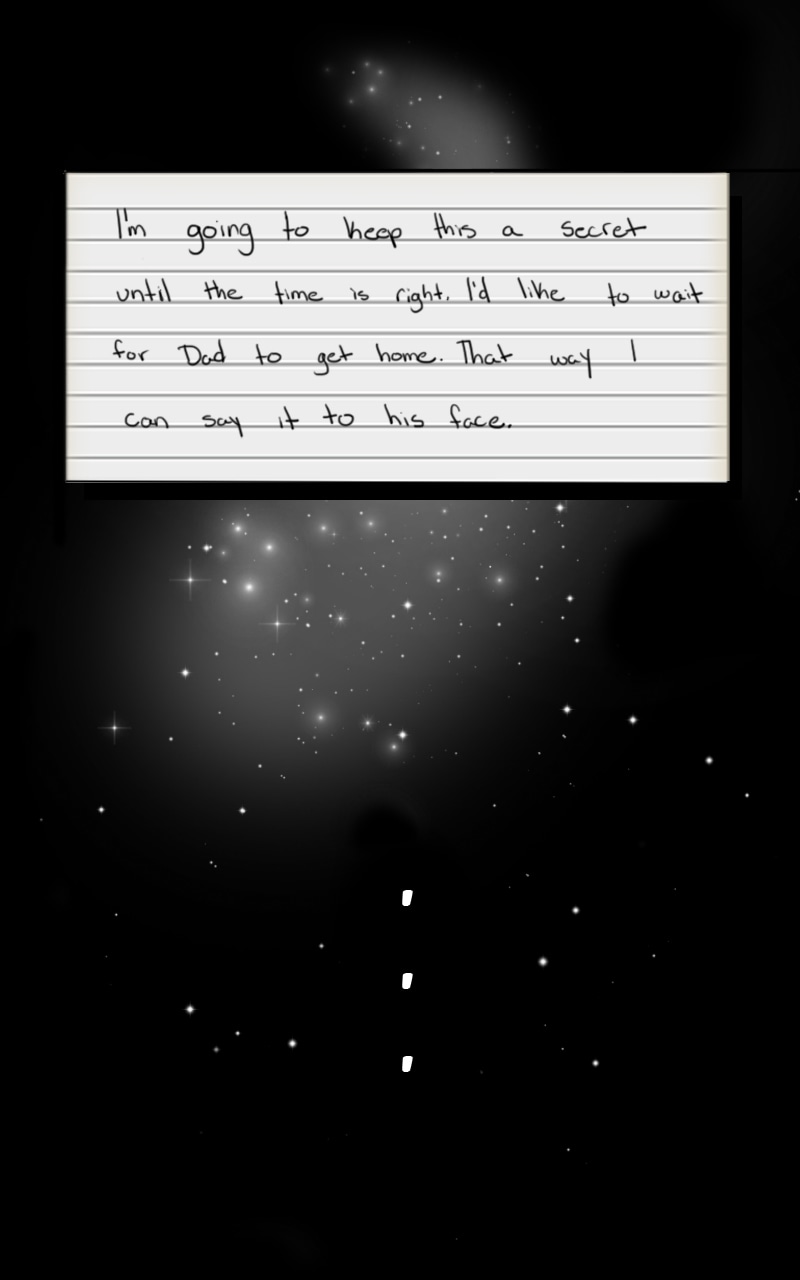 I'm going to keep this a secret
until the time is right. I'd like to wait
for Dad to get home. That way I
can say it to his face.